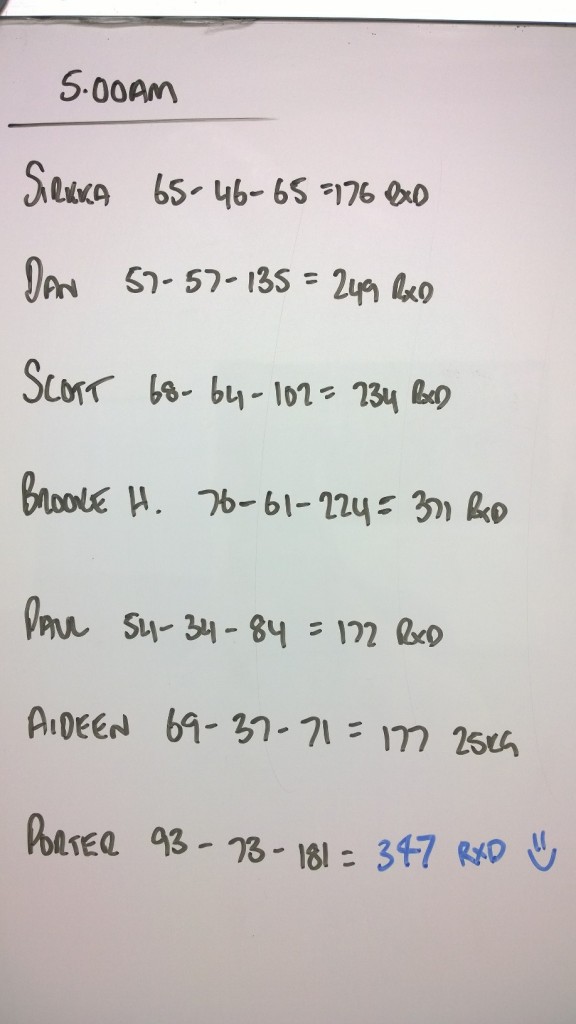 5.00AM
SIRKKA 65-46-65=176 RXD
DAN 57-57-135=249 RXD
SCOTT 68-64-102=234 RXD
BROOKE H. 76-61-224=371 RXD
PAUL 54-34-84=172 RXD
AIDEEN 69-37-71=177 25KG
PORTER 93-73-181=347 RXD